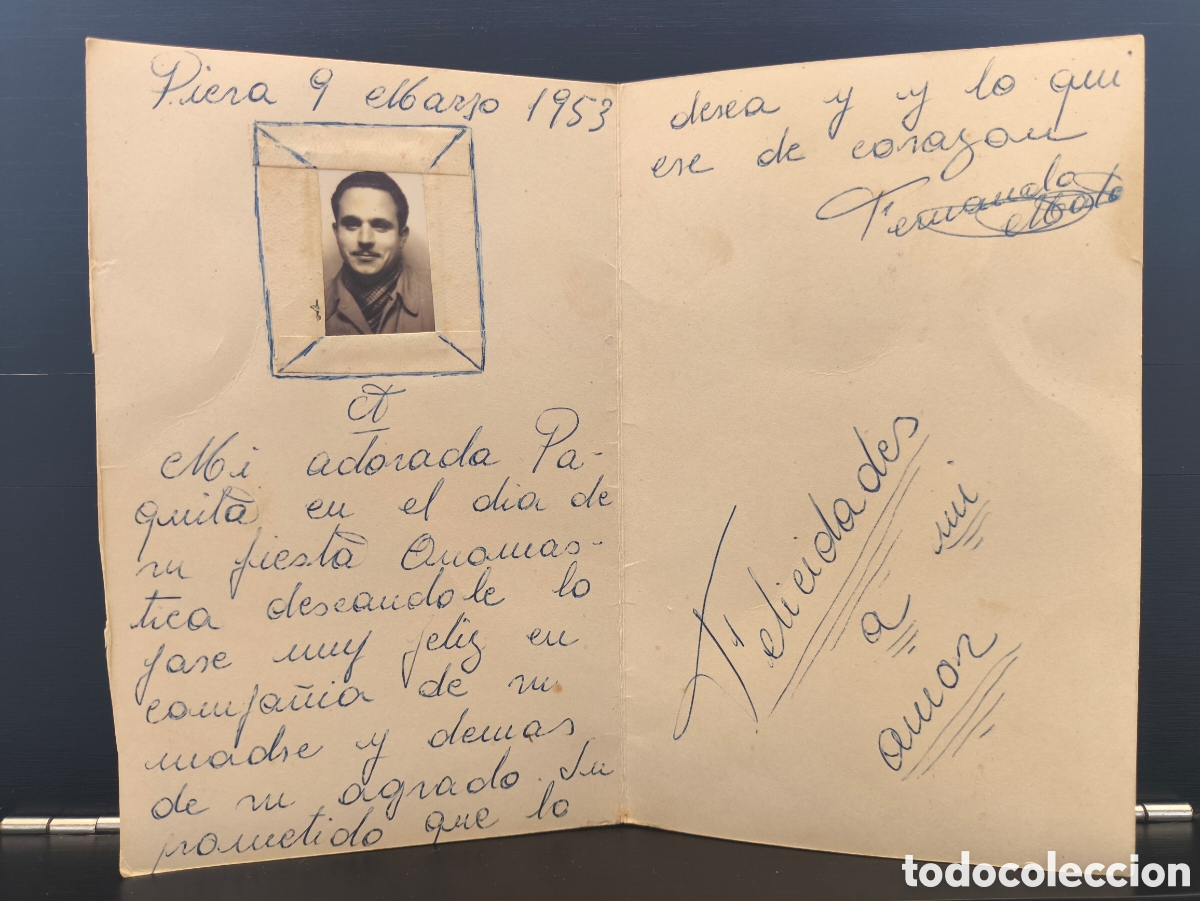 Piera 9 Marzo 1953
Mi adorada Pa-
quita en el dia de
su fiesta Onomas-
tica deseandole lo
pase muy feliz en
compañia de su
madre y demas
de su agrado. Su
prometido que lo
desea y y lo qui
ere de corazon
Fernando
Felicidades
a mi
amor
todocoleccion